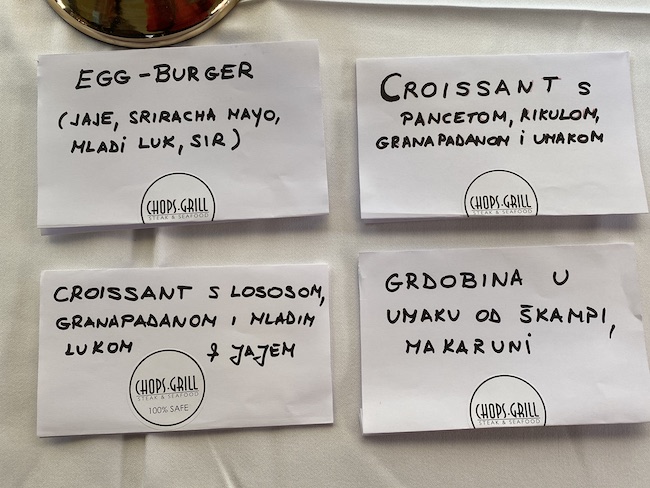 EGG-BURGER
(JAJE, SRIRACHA MAYO,
MLADI LUK, SIR)
CHOPS·GRILL
STEAK & SEAFOOD
CROISSANT S
PANCETOM, RIKULOM,
GRANAPADANOM I UMAKOM
CHOPS·GRILL
STEAK & SEAFOOD
CROISSANT S LOSOSOM,
GRANAPADANOM I MLADIM
LUKOM & JAJEM
CHOPS·GRILL
STEAK & SEAFOOD
100% SAFE
GRDOBINA U
UMAKU OD ŠKAMPI,
MAKARUNI
CHOPS·GRILL
STEAK & SEAFOOD